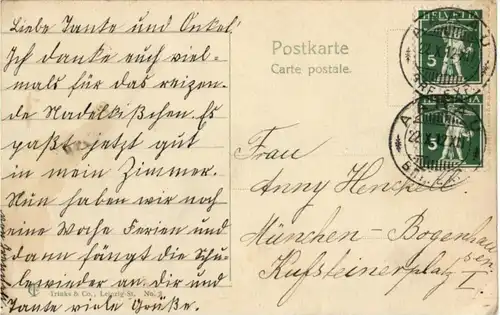 Liebe Tante und Onkel!
Ich danke euch viel-
mals für das reizen-
de Nadelkißchen. Es
paßt jetzt gut
in mein Zimmer.
Nun haben wir noch
eine Woche Ferien und
dann fängt die Schu-
le wieder an. dir und
Tante viele Grüße.
Trinks & Co., Leipzig-St. No. 2
Postkarte
Carte postale.
HELVETIA
5
5
Frau
Anny Henckell
München-Bogenhau
sen
Kufsteinerplatz I.